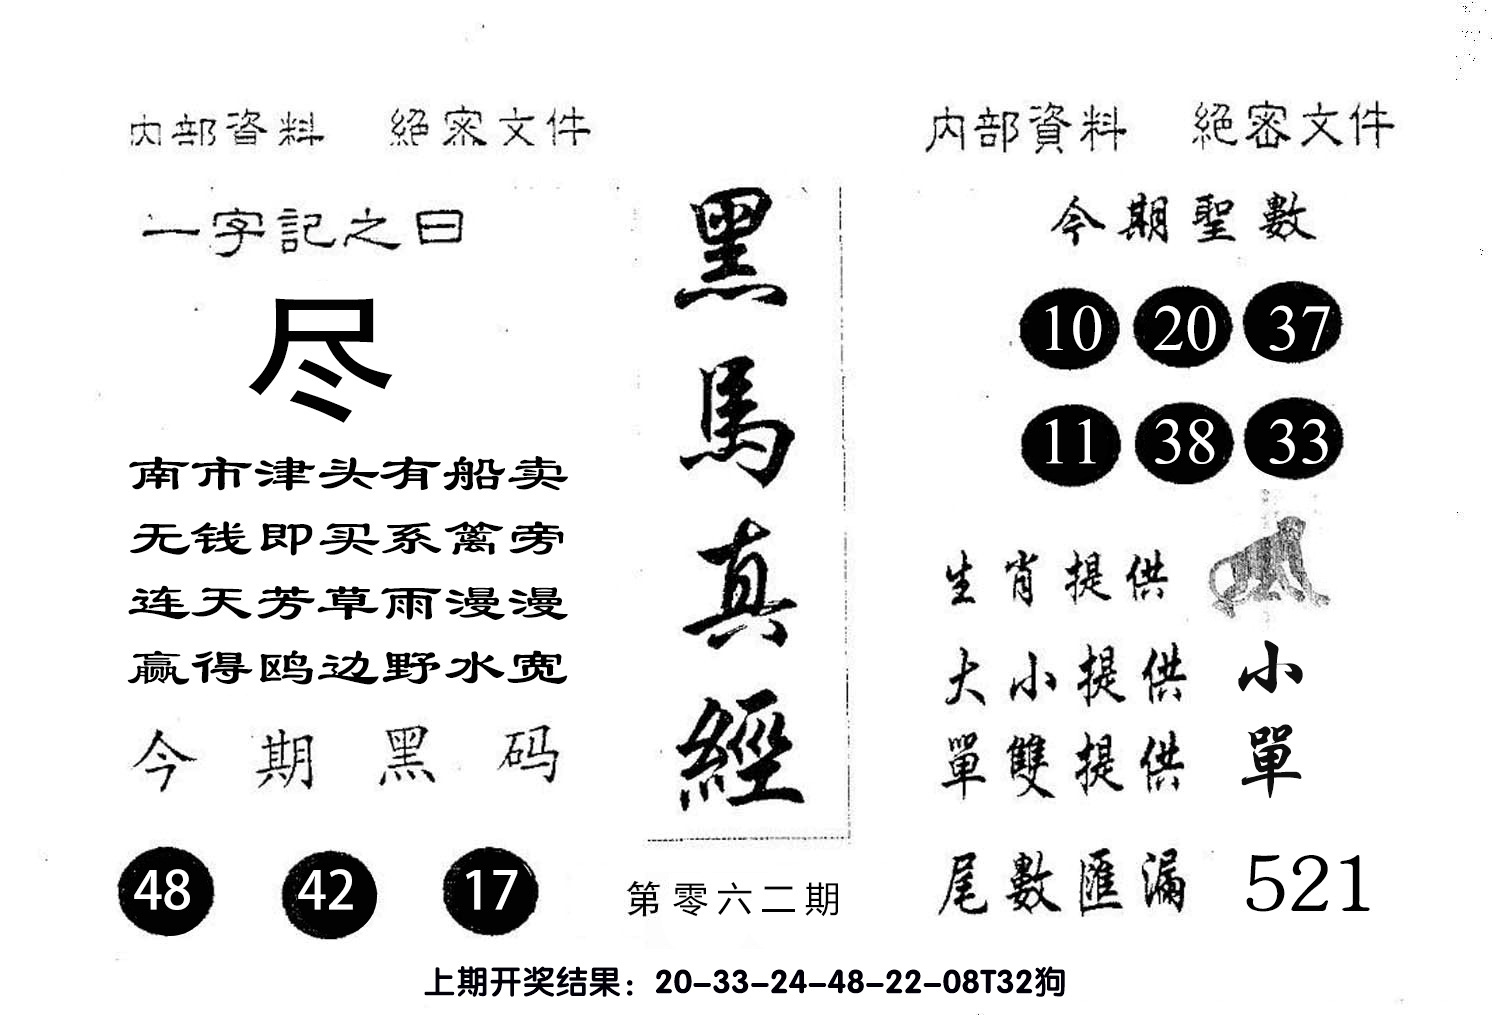 内部資料 絕密文件
一字記之曰
尽
南市津头有船卖
无钱即买系篱旁
连天芳草雨漫漫
赢得鸥边野水宽
今期黑码
48 42 17
黑馬真經
第零六二期
内部資料 絕密文件
今期聖數
10 20 37
11 38 33
生肖提供
大小提供 小
單雙提供 單
尾數匯漏 521
上期开奖结果：20-33-24-48-22-08T32狗